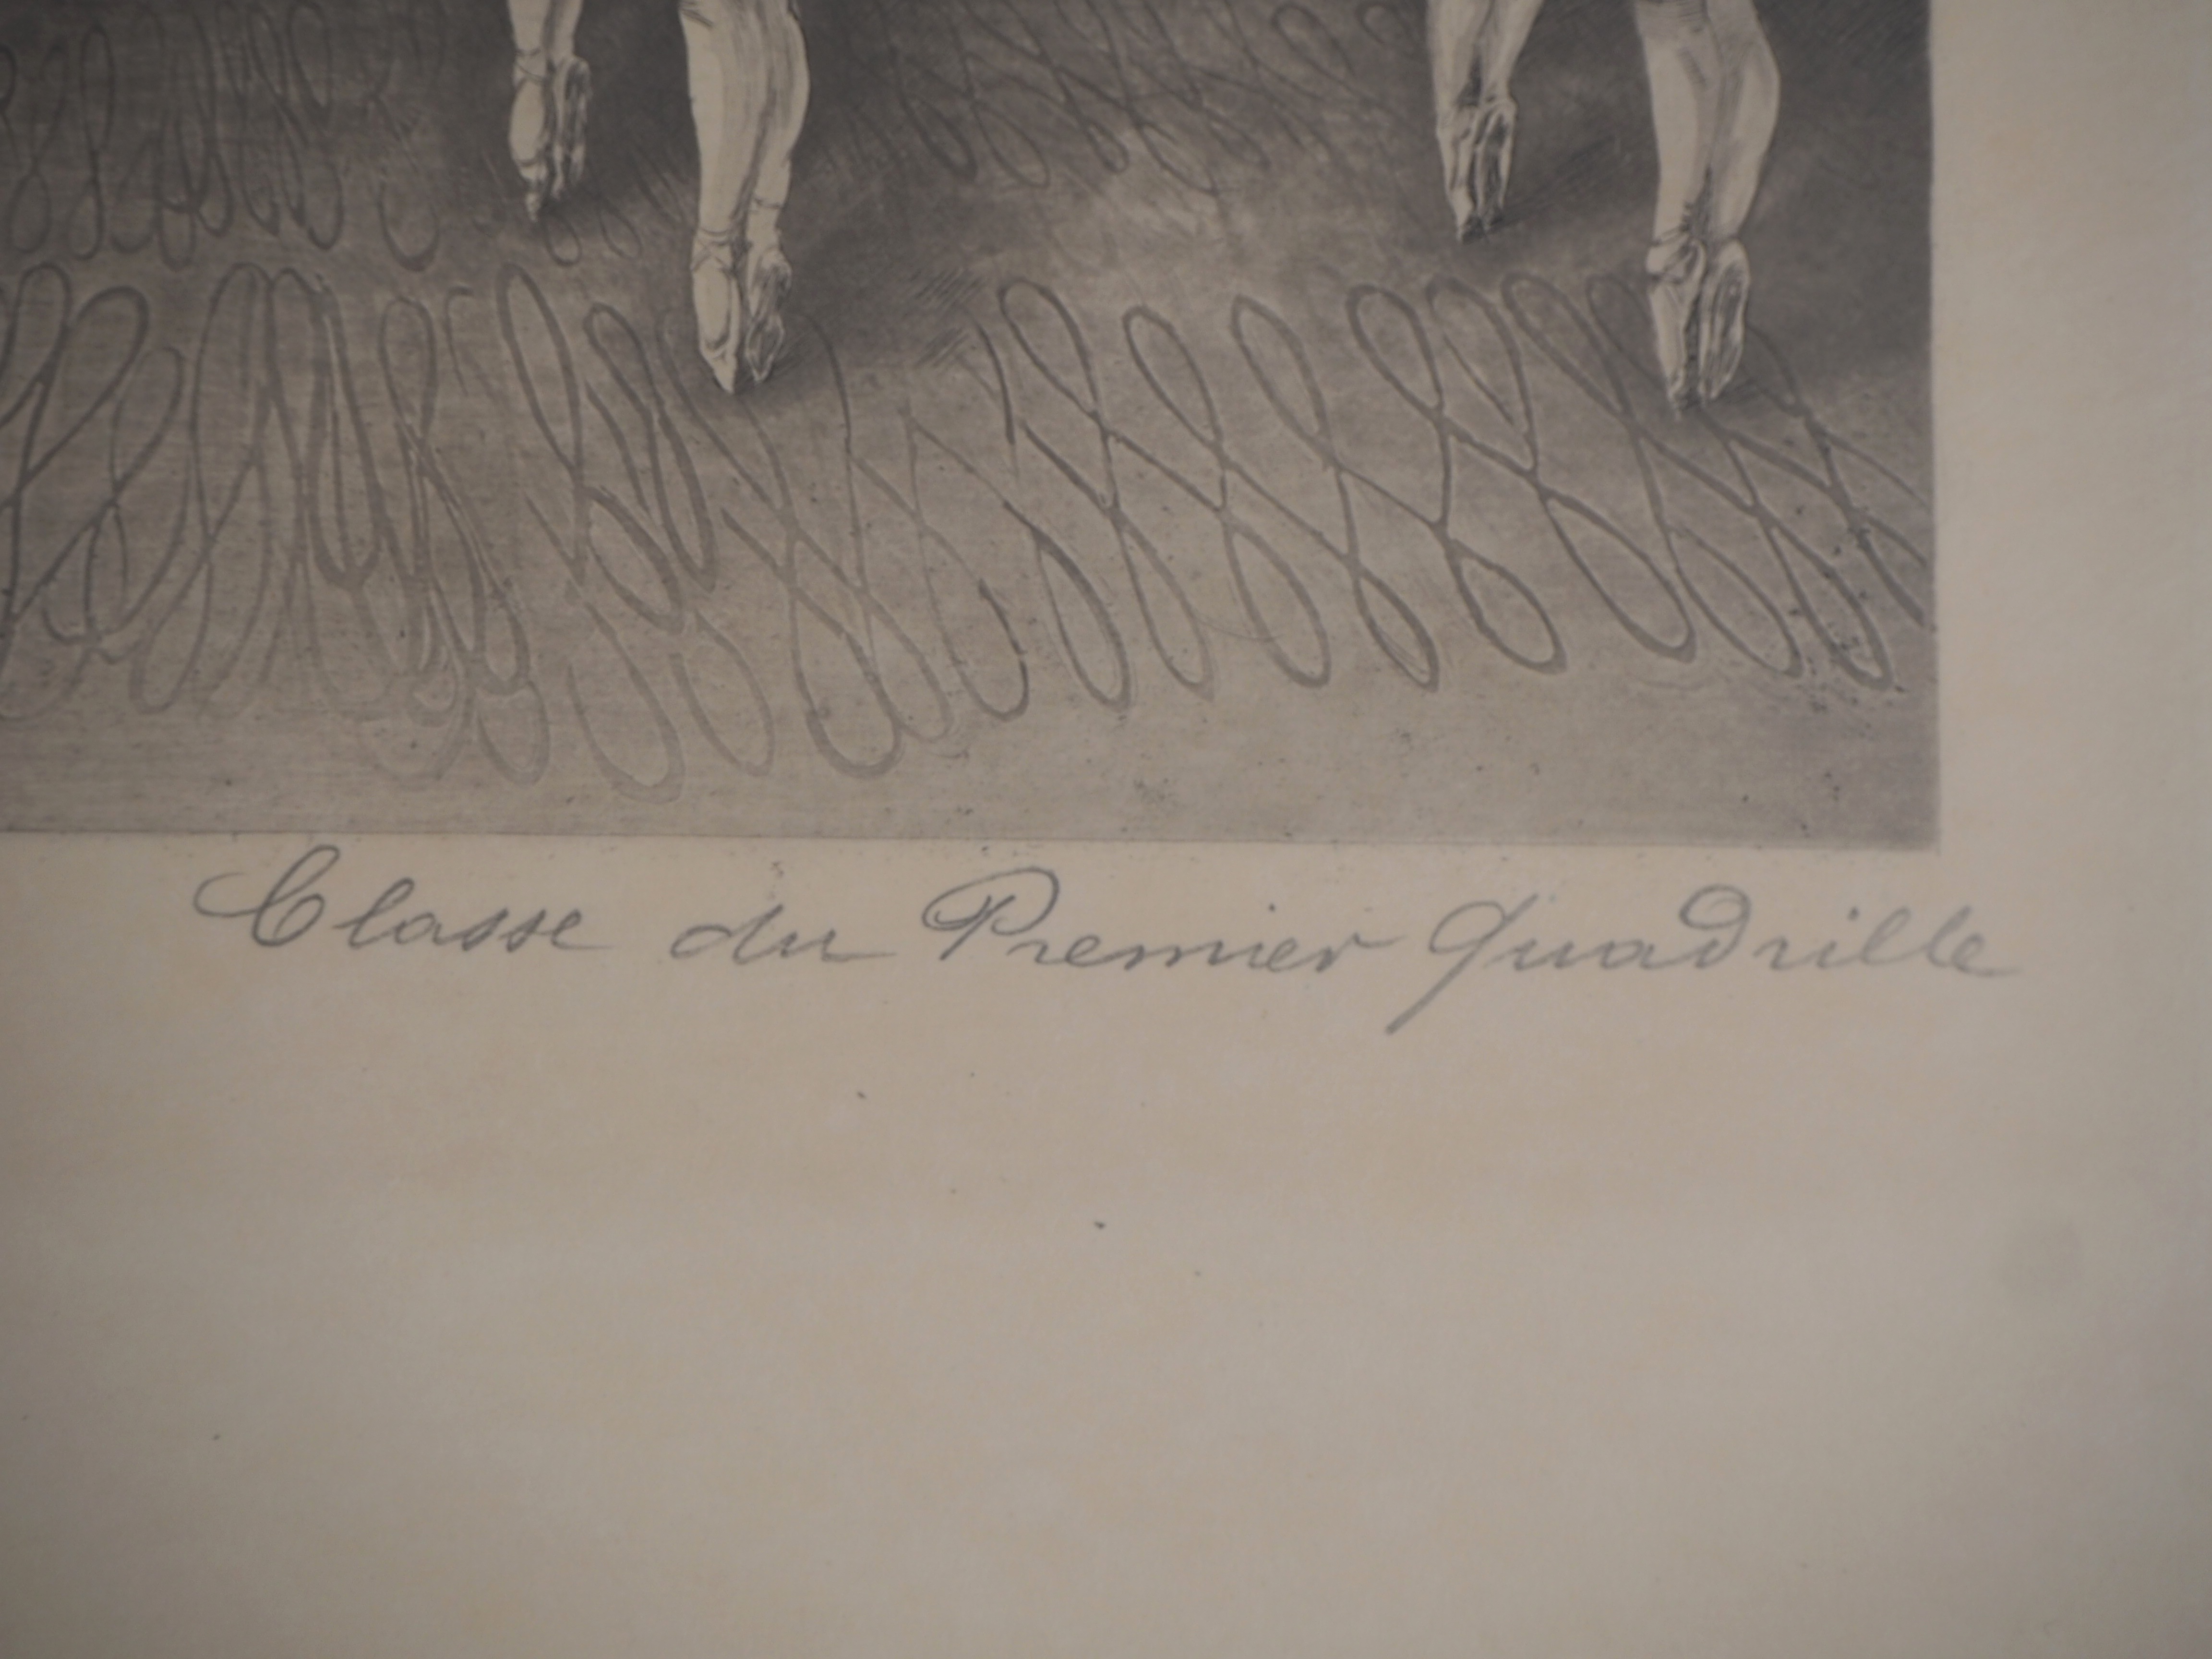 Classe du Premier QuaDrille